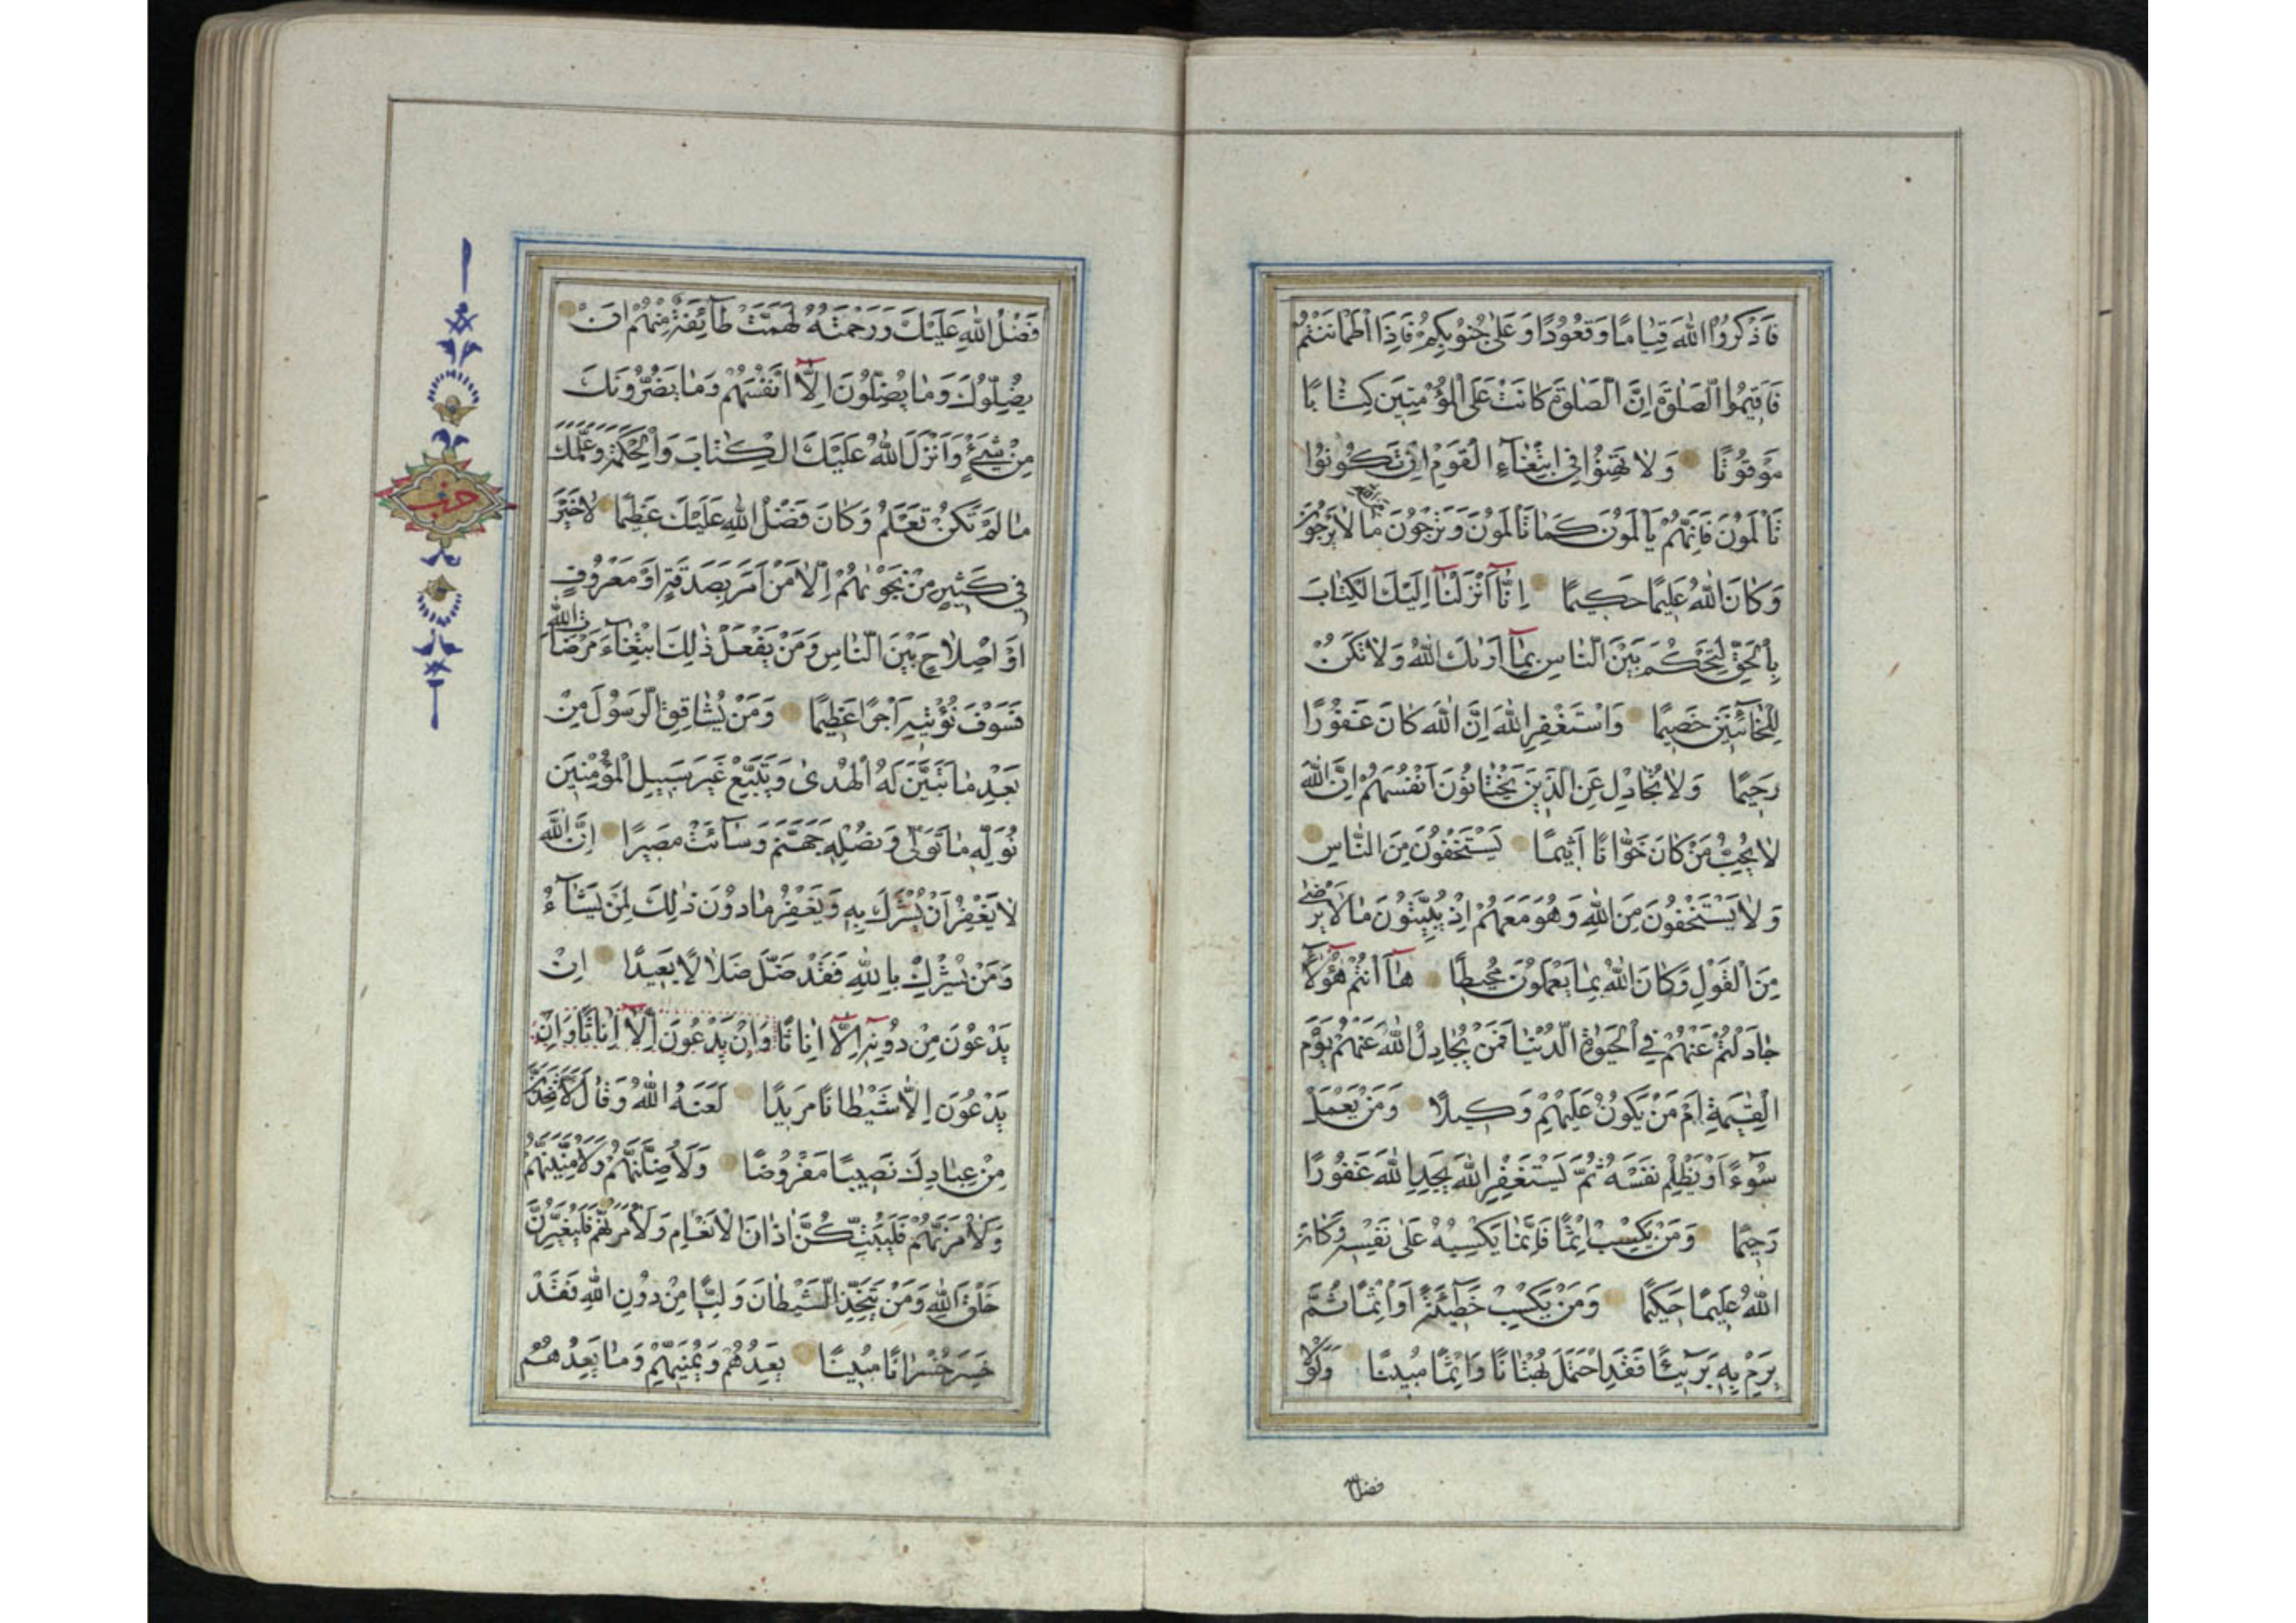 فَاذْكُرُوا اللّٰهَ قِيَامًا وَقُعُودًا وَعَلٰى جُنُوبِكُمْ فَاِذَا اطْمَاْنَنْتُمْ
فَاَقِيمُوا الصَّلٰوةَ اِنَّ الصَّلٰوةَ كَانَتْ عَلَى الْمُؤْمِنِينَ كِتَابًا
مَوْقُوتًا وَلَا تَهِنُوا فِى ابْتِغَآءِ الْقَوْمِ اِنْ تَكُونُوا
تَاْلَمُونَ فَاِنَّهُمْ يَاْلَمُونَ كَمَا تَاْلَمُونَ وَتَرْجُونَ مِنَ اللّٰهِ مَا لَا يَرْجُونَ
وَكَانَ اللّٰهُ عَلِيمًا حَكِيمًا اِنَّآ اَنْزَلْنَآ اِلَيْكَ الْكِتَابَ
بِالْحَقِّ لِتَحْكُمَ بَيْنَ النَّاسِ بِمَآ اَرٰيكَ اللّٰهُ وَلَا تَكُنْ
لِلْخَآئِنِينَ خَصِيمًا وَاسْتَغْفِرِ اللّٰهَ اِنَّ اللّٰهَ كَانَ غَفُورًا
رَحِيمًا وَلَا تُجَادِلْ عَنِ الَّذِينَ يَخْتَانُونَ اَنْفُسَهُمْ اِنَّ اللّٰهَ
لَا يُحِبُّ مَنْ كَانَ خَوَّانًا اَثِيمًا يَسْتَخْفُونَ مِنَ النَّاسِ
وَلَا يَسْتَخْفُونَ مِنَ اللّٰهِ وَهُوَ مَعَهُمْ اِذْ يُبَيِّتُونَ مَا لَا يَرْضٰى
مِنَ الْقَوْلِ وَكَانَ اللّٰهُ بِمَا يَعْمَلُونَ مُحِيطًا هَآ اَنْتُمْ هٰٓؤُلَآءِ
جَادَلْتُمْ عَنْهُمْ فِى الْحَيٰوةِ الدُّنْيَا فَمَنْ يُجَادِلُ اللّٰهَ عَنْهُمْ يَوْمَ
الْقِيٰمَةِ اَمْ مَنْ يَكُونُ عَلَيْهِمْ وَكِيلًا وَمَنْ يَعْمَلْ
سُوٓءًا اَوْ يَظْلِمْ نَفْسَهُ ثُمَّ يَسْتَغْفِرِ اللّٰهَ يَجِدِ اللّٰهَ غَفُورًا
رَحِيمًا وَمَنْ يَكْسِبْ اِثْمًا فَاِنَّمَا يَكْسِبُهُ عَلٰى نَفْسِهِ وَكَانَ
اللّٰهُ عَلِيمًا حَكِيمًا وَمَنْ يَكْسِبْ خَطِٓيئَةً اَوْ اِثْمًا ثُمَّ
يَرْمِ بِهِ بَرِٓيئًا فَقَدِ احْتَمَلَ بُهْتَانًا وَاِثْمًا مُبِينًا وَلَوْلَا
فضل الله
فَضْلُ اللّٰهِ عَلَيْكَ وَرَحْمَتُهُ لَهَمَّتْ طَآئِفَةٌ مِنْهُمْ اَنْ
يُضِلُّوكَ وَمَا يُضِلُّونَ اِلَّآ اَنْفُسَهُمْ وَمَا يَضُرُّونَكَ
مِنْ شَىْءٍ وَاَنْزَلَ اللّٰهُ عَلَيْكَ الْكِتَابَ وَالْحِكْمَةَ وَعَلَّمَكَ
مَا لَمْ تَكُنْ تَعْلَمُ وَكَانَ فَضْلُ اللّٰهِ عَلَيْكَ عَظِيمًا لَا خَيْرَ
فِى كَثِيرٍ مِنْ نَجْوٰيهُمْ اِلَّا مَنْ اَمَرَ بِصَدَقَةٍ اَوْ مَعْرُوفٍ
اَوْ اِصْلَاحٍ بَيْنَ النَّاسِ وَمَنْ يَفْعَلْ ذٰلِكَ ابْتِغَآءَ مَرْضَاتِ اللّٰهِ
فَسَوْفَ نُؤْتِيهِ اَجْرًا عَظِيمًا وَمَنْ يُشَاقِقِ الرَّسُولَ مِنْ
بَعْدِ مَا تَبَيَّنَ لَهُ الْهُدٰى وَيَتَّبِعْ غَيْرَ سَبِيلِ الْمُؤْمِنِينَ
نُوَلِّهِ مَا تَوَلّٰى وَنُصْلِهِ جَهَنَّمَ وَسَآءَتْ مَصِيرًا اِنَّ اللّٰهَ
لَا يَغْفِرُ اَنْ يُشْرَكَ بِهِ وَيَغْفِرُ مَا دُونَ ذٰلِكَ لِمَنْ يَشَآءُ
وَمَنْ يُشْرِكْ بِاللّٰهِ فَقَدْ ضَلَّ ضَلَالًا بَعِيدًا اِنْ
يَدْعُونَ مِنْ دُونِهِ اِلَّآ اِنَاثًا وَاِنْ يَدْعُونَ اِلَّآ اِنَاثًا وَاِنْ
يَدْعُونَ اِلَّا شَيْطَانًا مَرِيدًا لَعَنَهُ اللّٰهُ وَقَالَ لَاَتَّخِذَنَّ
مِنْ عِبَادِكَ نَصِيبًا مَفْرُوضًا وَلَاُضِلَّنَّهُمْ وَلَاُمَنِّيَنَّهُمْ
وَلَاٰمُرَنَّهُمْ فَلَيُبَتِّكُنَّ اٰذَانَ الْاَنْعَامِ وَلَاٰمُرَنَّهُمْ فَلَيُغَيِّرُنَّ
خَلْقَ اللّٰهِ وَمَنْ يَتَّخِذِ الشَّيْطَانَ وَلِيًّا مِنْ دُونِ اللّٰهِ فَقَدْ
خَسِرَ خُسْرَانًا مُبِينًا يَعِدُهُمْ وَيُمَنِّيهِمْ وَمَا يَعِدُهُمُ
حزب